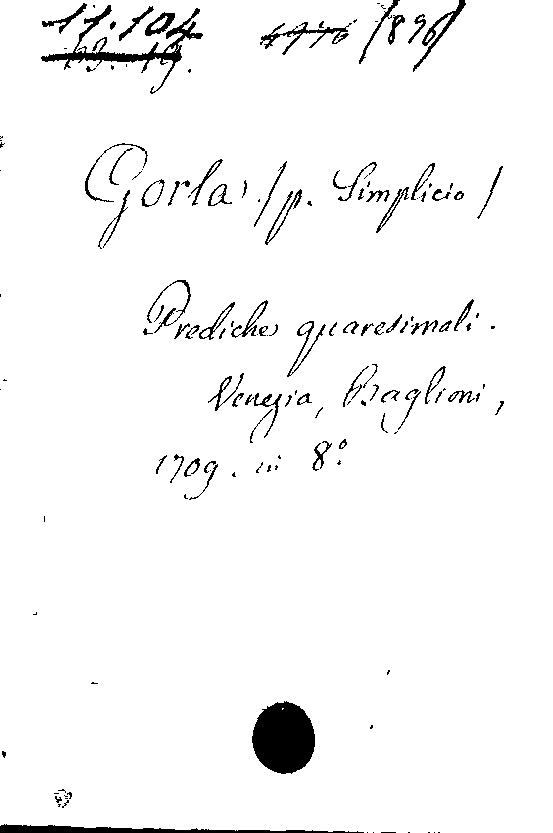 11.104 1896
Gorla (p. Simplicio)
Prediche quaresimali.
Venezia, Baglioni,
1709. in 8º.